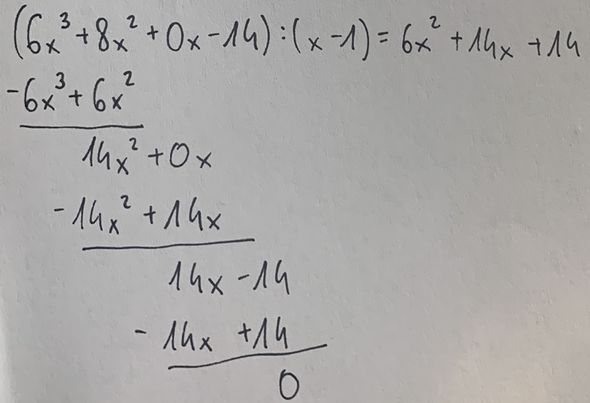 (6x³+8x²+0x-14):(x-1)=6x²+14x+14
-6x³+6x²
14x²+0x
-14x²+14x
14x-14
-14x+14
0